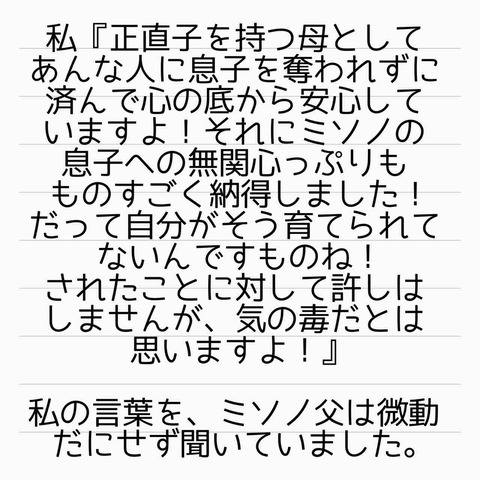 私『正直子を持つ母として
あんな人に息子を奪われずに
済んで心の底から安心して
いますよ！それにミソノの
息子への無関心っぷりも
ものすごく納得しました！
だって自分がそう育てられて
ないんですものね！
されたことに対して許しは
しませんが、気の毒だとは
思いますよ！』
私の言葉を、ミソノ父は微動
だにせず聞いていました。